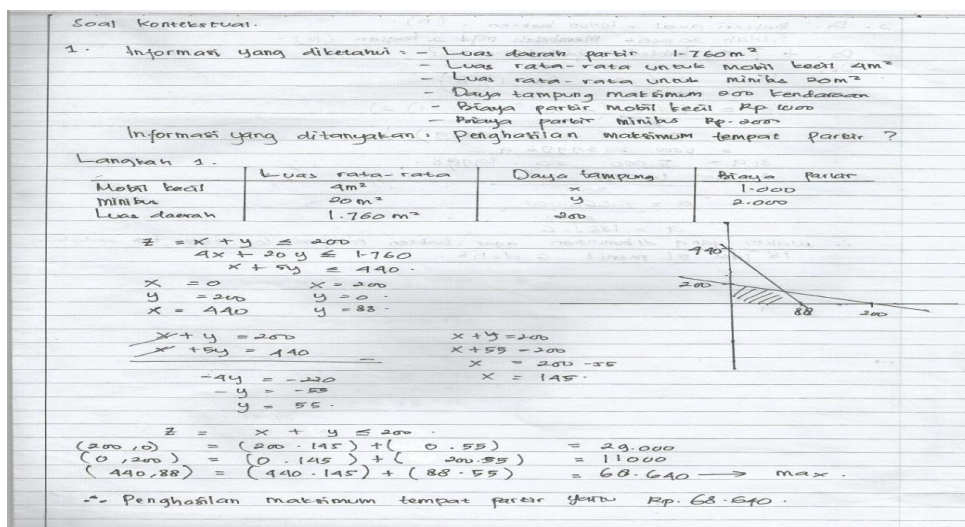 Soal kontekstual.
1. Informasi yang diketahui = - Luas daerah parkir 1.760 m²
- Luas rata-rata untuk mobil kecil 4m²
- Luas rata-rata untuk minibus 20m²
- Daya tampung maksimum 200 kendaraan
- Biaya parkir mobil kecil Rp 1000
- Biaya parkir minibus Rp. 2000
Informasi yang ditanyakan : Penghasilan maksimum tempat parkir ?
Langkah 1.
Luas rata-rata Daya tampung Biaya parkir
Mobil kecil 4m² x 1.000
Minibus 20 m² y 2.000
Luas daerah 1.760 m² 200
Z = x + y ≤ 200
4x + 20 y ≤ 1.760
x + 5y = 440.
x = 0 x = 200
y = 200 y = 0.
x = 440 y = 88.
440
200
88 200
x + y = 200 x + y = 200
x + 5y = 440 x + 55 = 200
x = 200 - 55
-4y = -220 x = 145.
-y = -55
y = 55.
Z = x + y ≤ 200
(200, 0) = (200 . 145) + (0 . 55) = 29.000
(0, 200) = (0 . 145) + (200 . 55) = 11000
(440, 88) = (440 . 145) + (88 . 55) = 68.640 → max.
∴ Penghasilan maksimum tempat parkir yaitu Rp. 68.640.